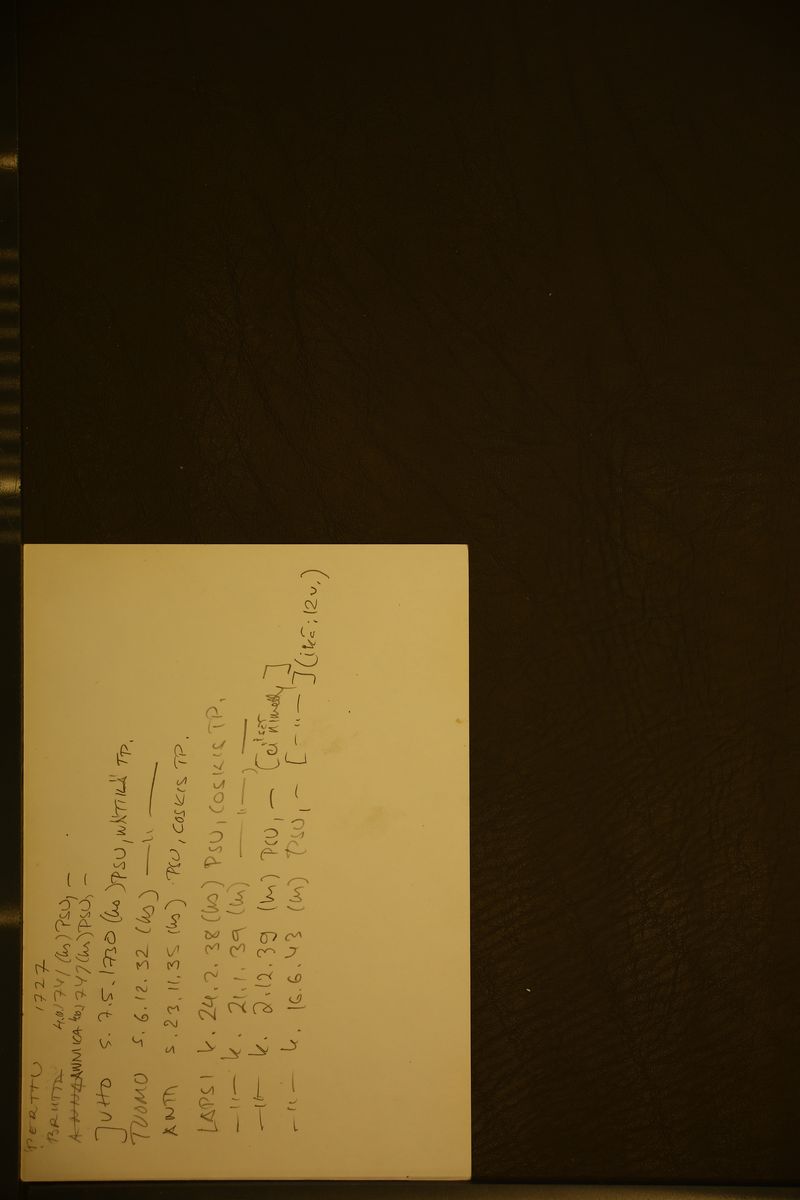 PERTTU 1727
BRUITTA 4.0/741 (hs) PSU, —
ANNIKA 1747 (hs) PSU, —
JUHO S. 7.5.1730 (hs) PSU, WÄTILÄ TP.
TUOMO S. 6.12.32 (hs) —"—
ANTTI S. 23.11.35 (hs) PSU, COSKIS TP.
LAPSI k. 24.2.38 (hs) PSU, COSKIS TP.
—"— k. 21.1.39 (hs) —"—, —
—"— k. 2.12.39 (hs) PSU, — [ei isät nimetty]
—"— k. 16.6.43 (hs) PSU, — [—"—] (ikä: 12 v.)